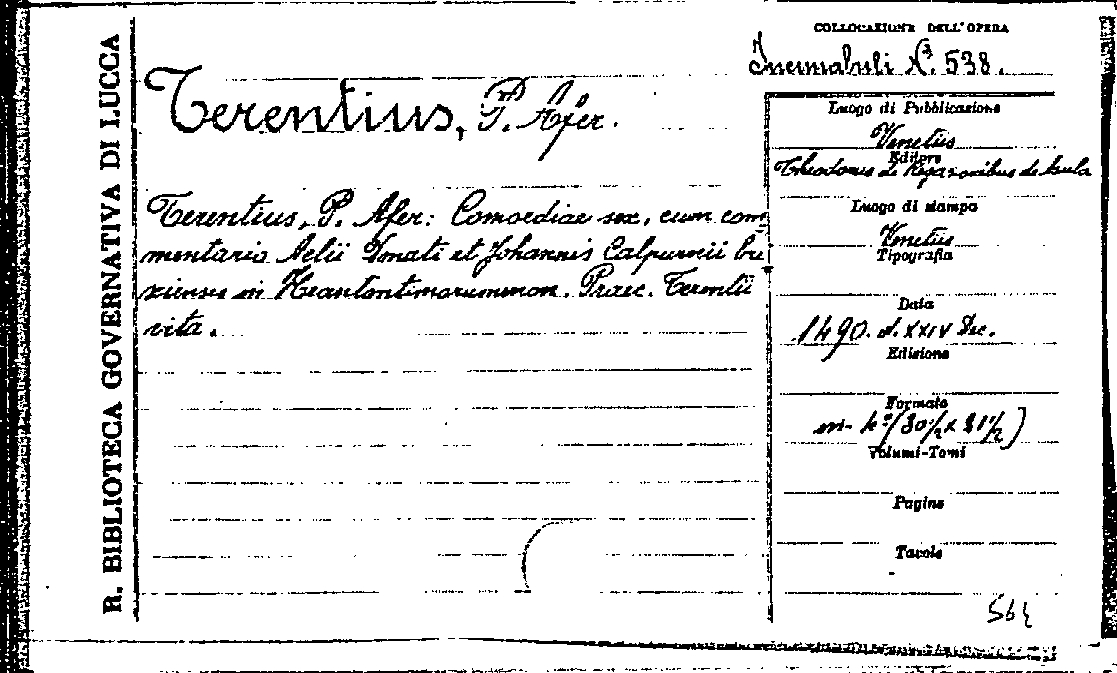 R. BIBLIOTECA GOVERNATIVA DI LUCCA
COLLOCAZIONE DELL'OPERA
Incunabuli N. 538.
Terentius, P. Afer.
Terentius, P. Afer: Comoediae sex, cum com
mentario Aelii Donati et Johannis Calpurnii bri
xiensis in Heautontimorumenon. Praec. Terentii
vita.
Luogo di Pubblicazione
Venetiis
Editore
Theodorus de Ragazonibus de Asula
Luogo di stampa
Venetiis
Tipografia
Data
1490. d. XXIV Dec.
Edizione
Formato
in-4º (30½ x 21½)
Volumi-Tomi
Pagine
Tavole